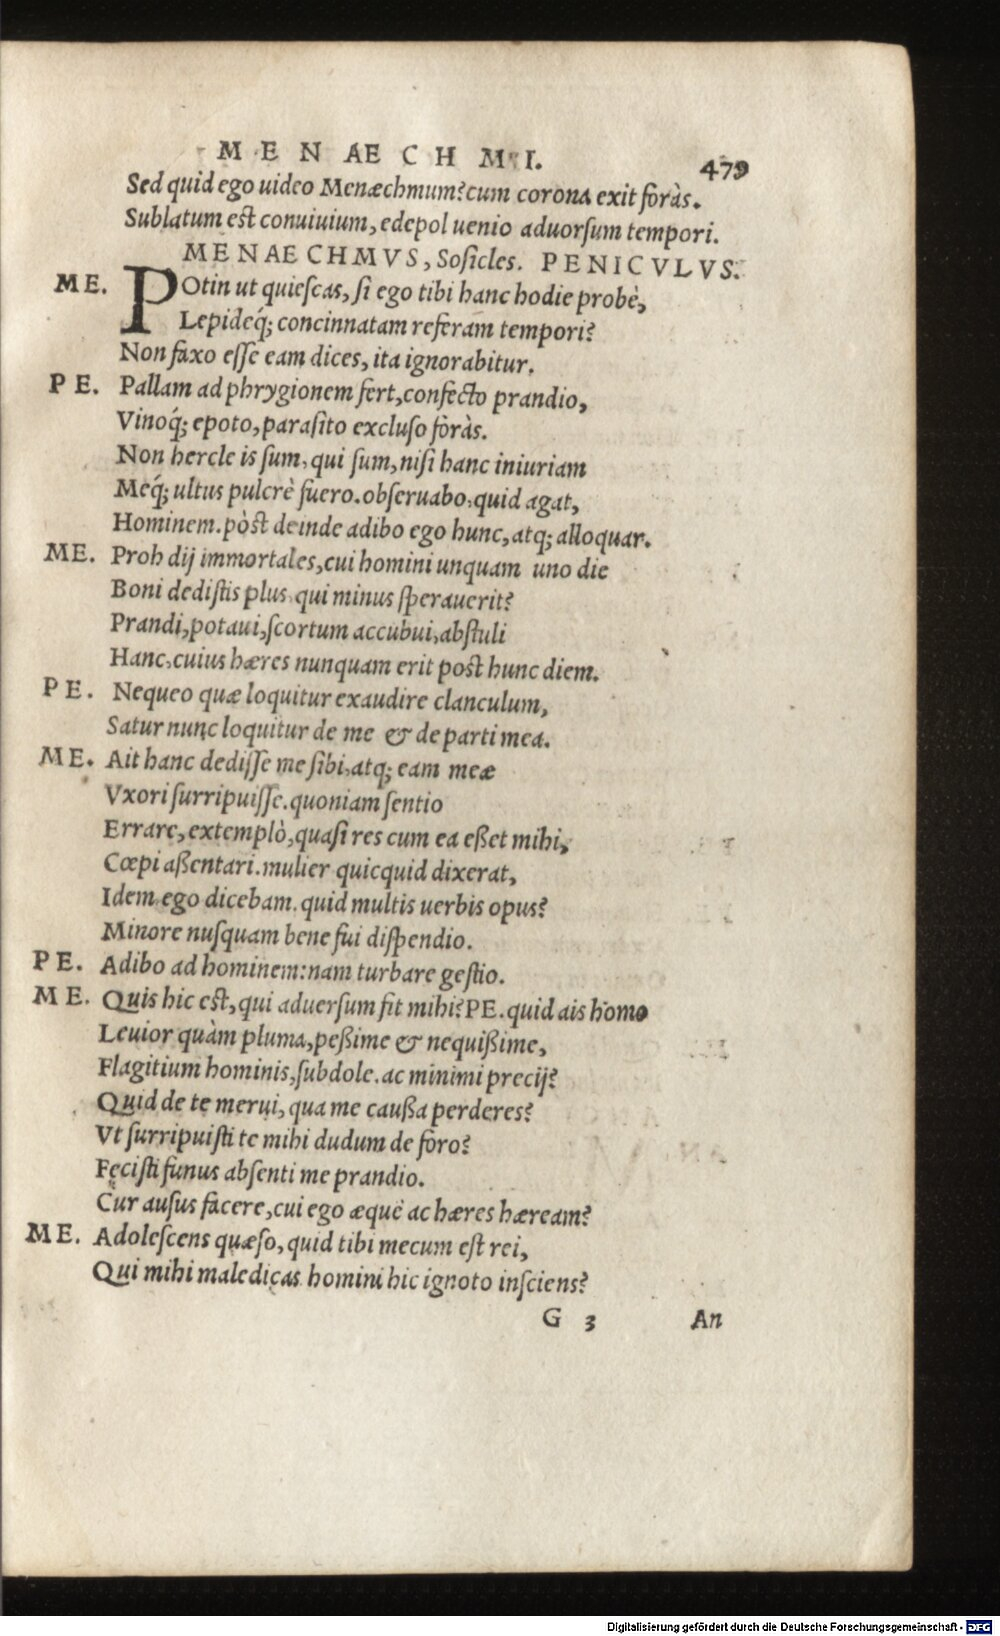 MENAECHMI. 479
Sed quid ego uideo Menæchmum? cum corona exit foràs.
Sublatum eſt conuiuium, edepol uenio aduorſum tempori.
MENAECHMVS, Soſicles. PENICVLVS.
ME. POtin ut quieſcas, ſi ego tibi hanc hodie probè,
Lepideq́; concinnatam referam tempori?
Non faxo eſſe eam dices, ita ignorabitur.
PE. Pallam ad phrygionem fert, confecto prandio,
Vinoq́; epoto, paraſito excluſo foràs.
Non hercle is ſum, qui ſum, niſi hanc iniuriam
Meq́; ultus pulcrè fuero. obſeruabo, quid agat,
Hominem. pòſt deinde adibo ego hunc, atq; alloquar.
ME. Proh dij immortales, cui homini unquam uno die
Boni dediſtis plus, qui minus ſperauerit?
Prandi, potaui, ſcortum accubui, abſtuli
Hanc, cuius hæres nunquam erit poſt hunc diem.
PE. Nequeo quæ loquitur exaudire clanculum,
Satur nunc loquitur de me & de parti mea.
ME. Ait hanc dediſſe me ſibi, atq; eam meæ
Vxori ſurripuiſſe. quoniam ſentio
Errare, extemplò, quaſi res cum ea eßet mihi,
Cœpi aßentari. mulier quicquid dixerat,
Idem ego dicebam. quid multis uerbis opus?
Minore nuſquam bene fui diſpendio.
PE. Adibo ad hominem: nam turbare geſtio.
ME. Quis hic eſt, qui aduerſum fit mihi? PE. quid ais homo
Leuior quàm pluma, peßime & nequißime,
Flagitium hominis, ſubdole. ac minimi precij?
Quid de te merui, qua me caußa perderes?
Vt ſurripuiſti te mihi dudum de foro?
Feciſti funus abſenti me prandio.
Cur auſus facere, cui ego æquè ac hæres hæream?
ME. Adoleſcens quæſo, quid tibi mecum eſt rei,
Qui mihi maledicas homini hic ignoto inſciens?
G 3 An
Digitalisierung gefördert durch die Deutsche Forschungsgemeinschaft - DFG